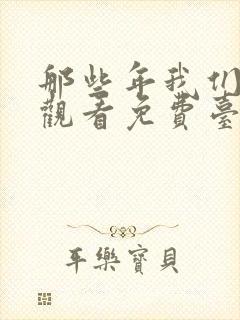 那些年我们
觀看免費臺
平樂寶貝